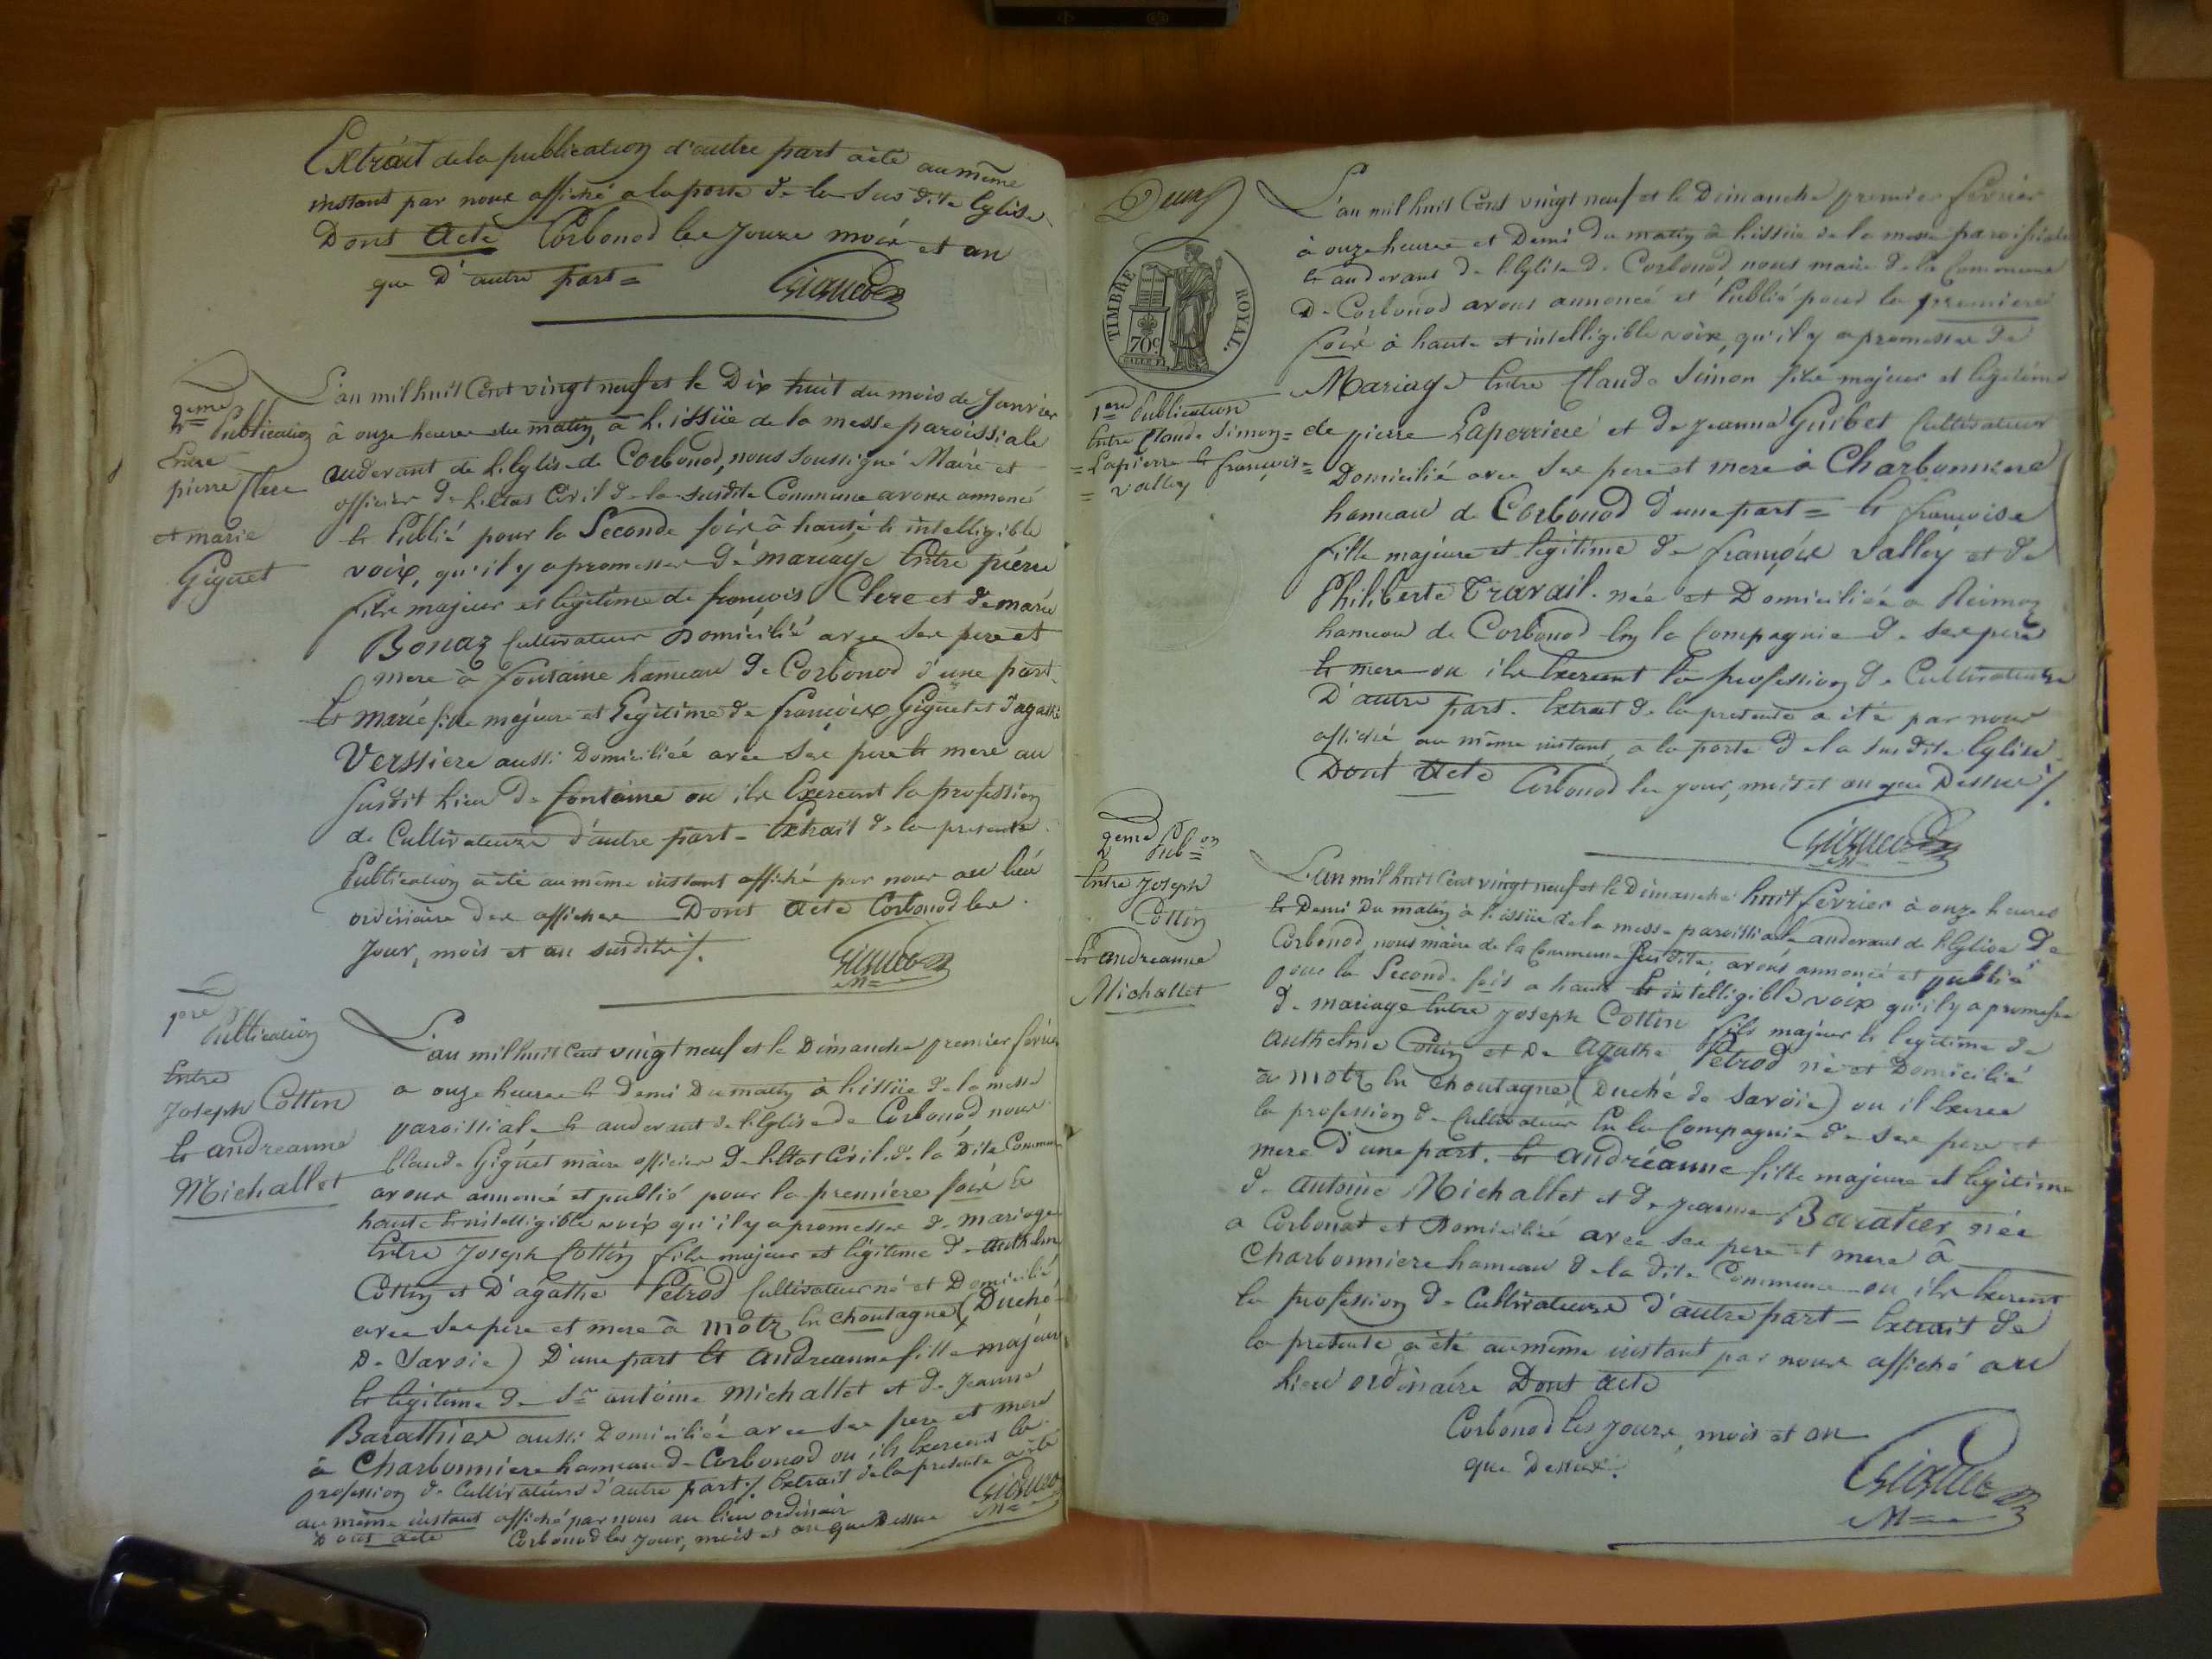 Extrait de la publication d'autre part a été au même
instant par nous affiché a la porte de la sus dite Eglise
Dont Acte Corbonod les Jours mois et an
que D'autre part =
Giguet
2eme
Publication
Entre
pierre Clerc
et marie
Giguet
L'an mil huit Cent vingt neuf et le Dix huit du mois de Janvier
à onze heures du matin, à l'issüe de la messe paroissiale
audevant de l'Eglise de Corbonod, nous soussigné Maire et
officier de l'Etat Civil de la susdite Commune avons annoncé
et Publié pour la Seconde fois à haute et intelligible
voix, qu'il y a promesses de mariage Entre pierre
fils majeur et légitime de françois Clerc et de marie
Bonaz Cultivateur Domicilié avec ses pere et
mere à fontaine hameau de Corbonod d'une part.
Et marie fille majeure et Legitime de françois Giguet et d'agathe
Verssiere aussi Domiciliée avec ses pere et mere au
susdit Lieu de fontaine ou ils Exercent la profession
de Cultivateurs d'autre part = Extrait de la presente
Publication a été au même instant affiché par nous au lieu
ordinaire des affiches Dont Acte Corbonod les
Jour, mois et an susdits /.
Giguet
M=
1ere
Publication
Entre
Joseph Cottin
et andreanne
Michallet
L'an mil huit Cent vingt neuf et le Dimanche premier févrie
a onze heures et demi Du matin à l'issüe de la messe
paroissiale et audevant de l'Eglise de Corbonod, nous
Claude Giguet maire officier de l'Etat Civil de la Dite Commune
avons annoncé et publié pour la premiere fois à
haute et intelligible voix qu'il y a promesses de mariage
Entre Joseph Cottin fils majeur et légitime d'anthelme
Cottin et D'agathe Petrod Cultivateur né et Domicilié
avec ses pere et mere à Motz en Choutagne (Duché
De Savoie) D'une part Et Andreanne fille majeure
et légitime de Sr antoine Michallet et de Jeanne
Barathier aussi Domiciliée avec ses pere et mere
à Charbonniere hameau de Corbonod ou ils Exercent la
profession de Cultivateurs d'autre part /. Extrait de la presente a été
au même instant affiché par nous au lieu ordinair
Dont acte Corbonod les Jour, mois et an que Dessus
Giguet
M=
Deux
TIMBRE ROYAL.
70c
1ere Publication
Entre Claude Simon =
= Lapierre et françoise =
= Valley
L'an mil huit Cent vingt neuf et le Dimanche premier février
à onze heures et Demi du matin à l'issüe de la messe paroissiale
et audevant de l'Eglise de Corbonod nous maire de la Commune
De Corbonod avons annoncé et Publié pour la premiere
fois à haute et intelligible voix, qu'il y a promesses de
Mariage Entre Claude Simon fils majeur et légitime
de pierre Laperriere et de Jeanne Guibet Cultivateur
Domicilié avec ses pere et mere à Charbonniere
hameau de Corbonod d'une part = Et françoise
fille majeure et legitime de françois Valley et de
Philiberte Travail. née et Domiciliée a Reimoz
hameau de Corbonod En la Compagnie de ses pere
et mere ou ils Exercent la profession de Cultivateurs
D'autre part. Extrait de la presente a été par nous
affiché au même instant, a la porte de la susdite Eglise.
Dont Acte Corbonod les jour, mois et an que Dessus /.
Giguet
2eme Pub.on
Entre Joseph
Cottin
Et andreanne
Michallet
L'an mil huit Cent vingt neuf et le Dimanche huit février à onze heures
et Demi Du matin à l'issüe de la messe paroissiale audevant de l'Eglise de
Corbonod, nous maire de la Commune susdite, avons annoncé et publié
pour la Seconde fois a haute et intelligible voix qu'il y a promesses
de mariage Entre Joseph Cottin fils majeur et legitime de
anthelme Cottin et De Agathe Petrod né et Domicilié
a Motz en Choutagne (Duché de Savoie) ou il Exerce
la profession de Cultivateur En la Compagnie de ses pere et
mere D'une part. Et Andréanne fille majeure et legitime
d'antoine Michallet et de Jeanne Baratier née
a Corbonod et Domiciliée avec ses pere et mere à
Charbonniere hameau de la dite Commune ou ils Exercent
la profession de Cultivateurs d'autre part = Extrait de
la presente a été au même instant par nous affiché au
Lieu ordinaire Dont Acte
Corbonod les Jours, mois et an
que Dessus.
Giguet
M=